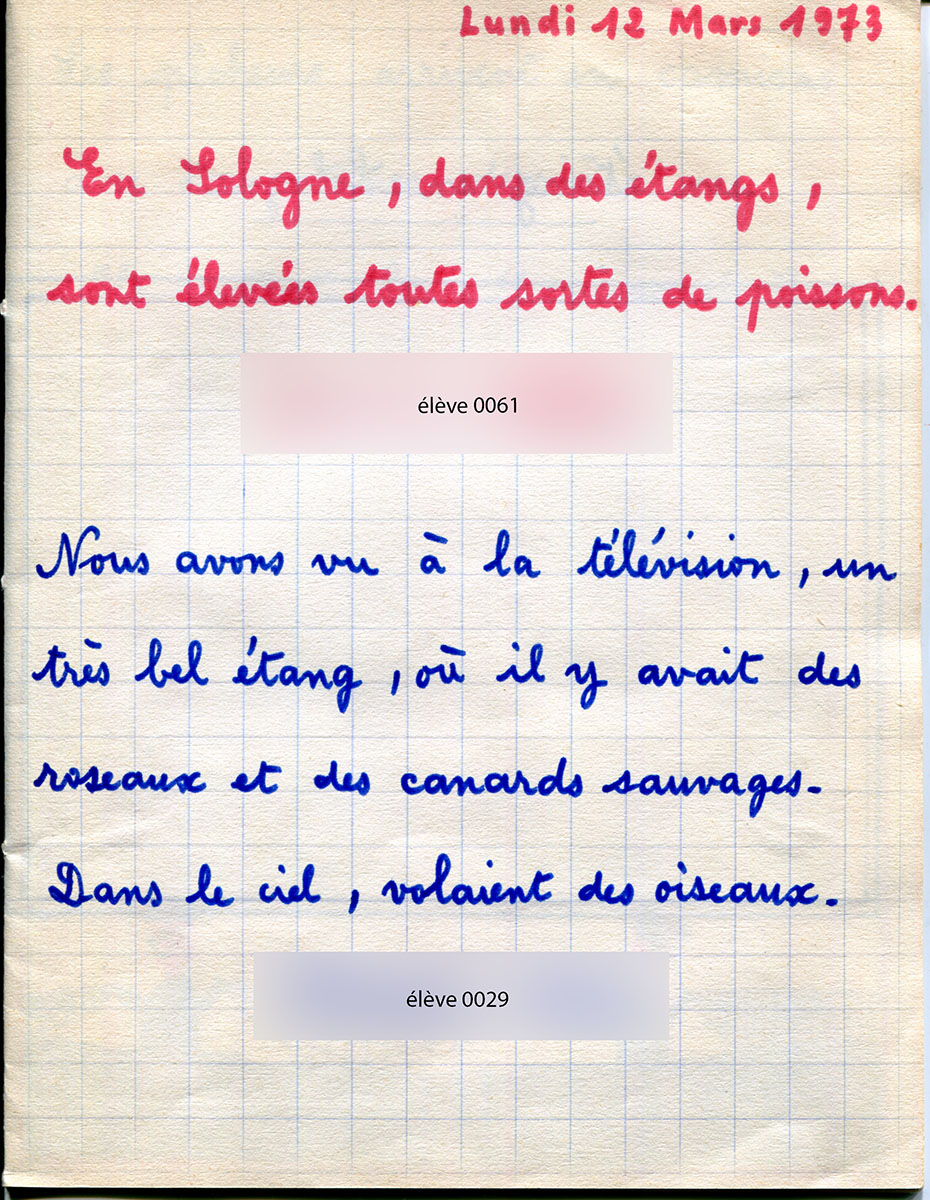 Lundi 12 Mars 1973
En Sologne, dans des étangs,
sont élevées toutes sortes de poissons.
élève 0061
Nous avons vu à la télévision, un
très bel étang, où il y avait des
roseaux et des canards sauvages.
Dans le ciel, volaient des oiseaux.
élève 0029